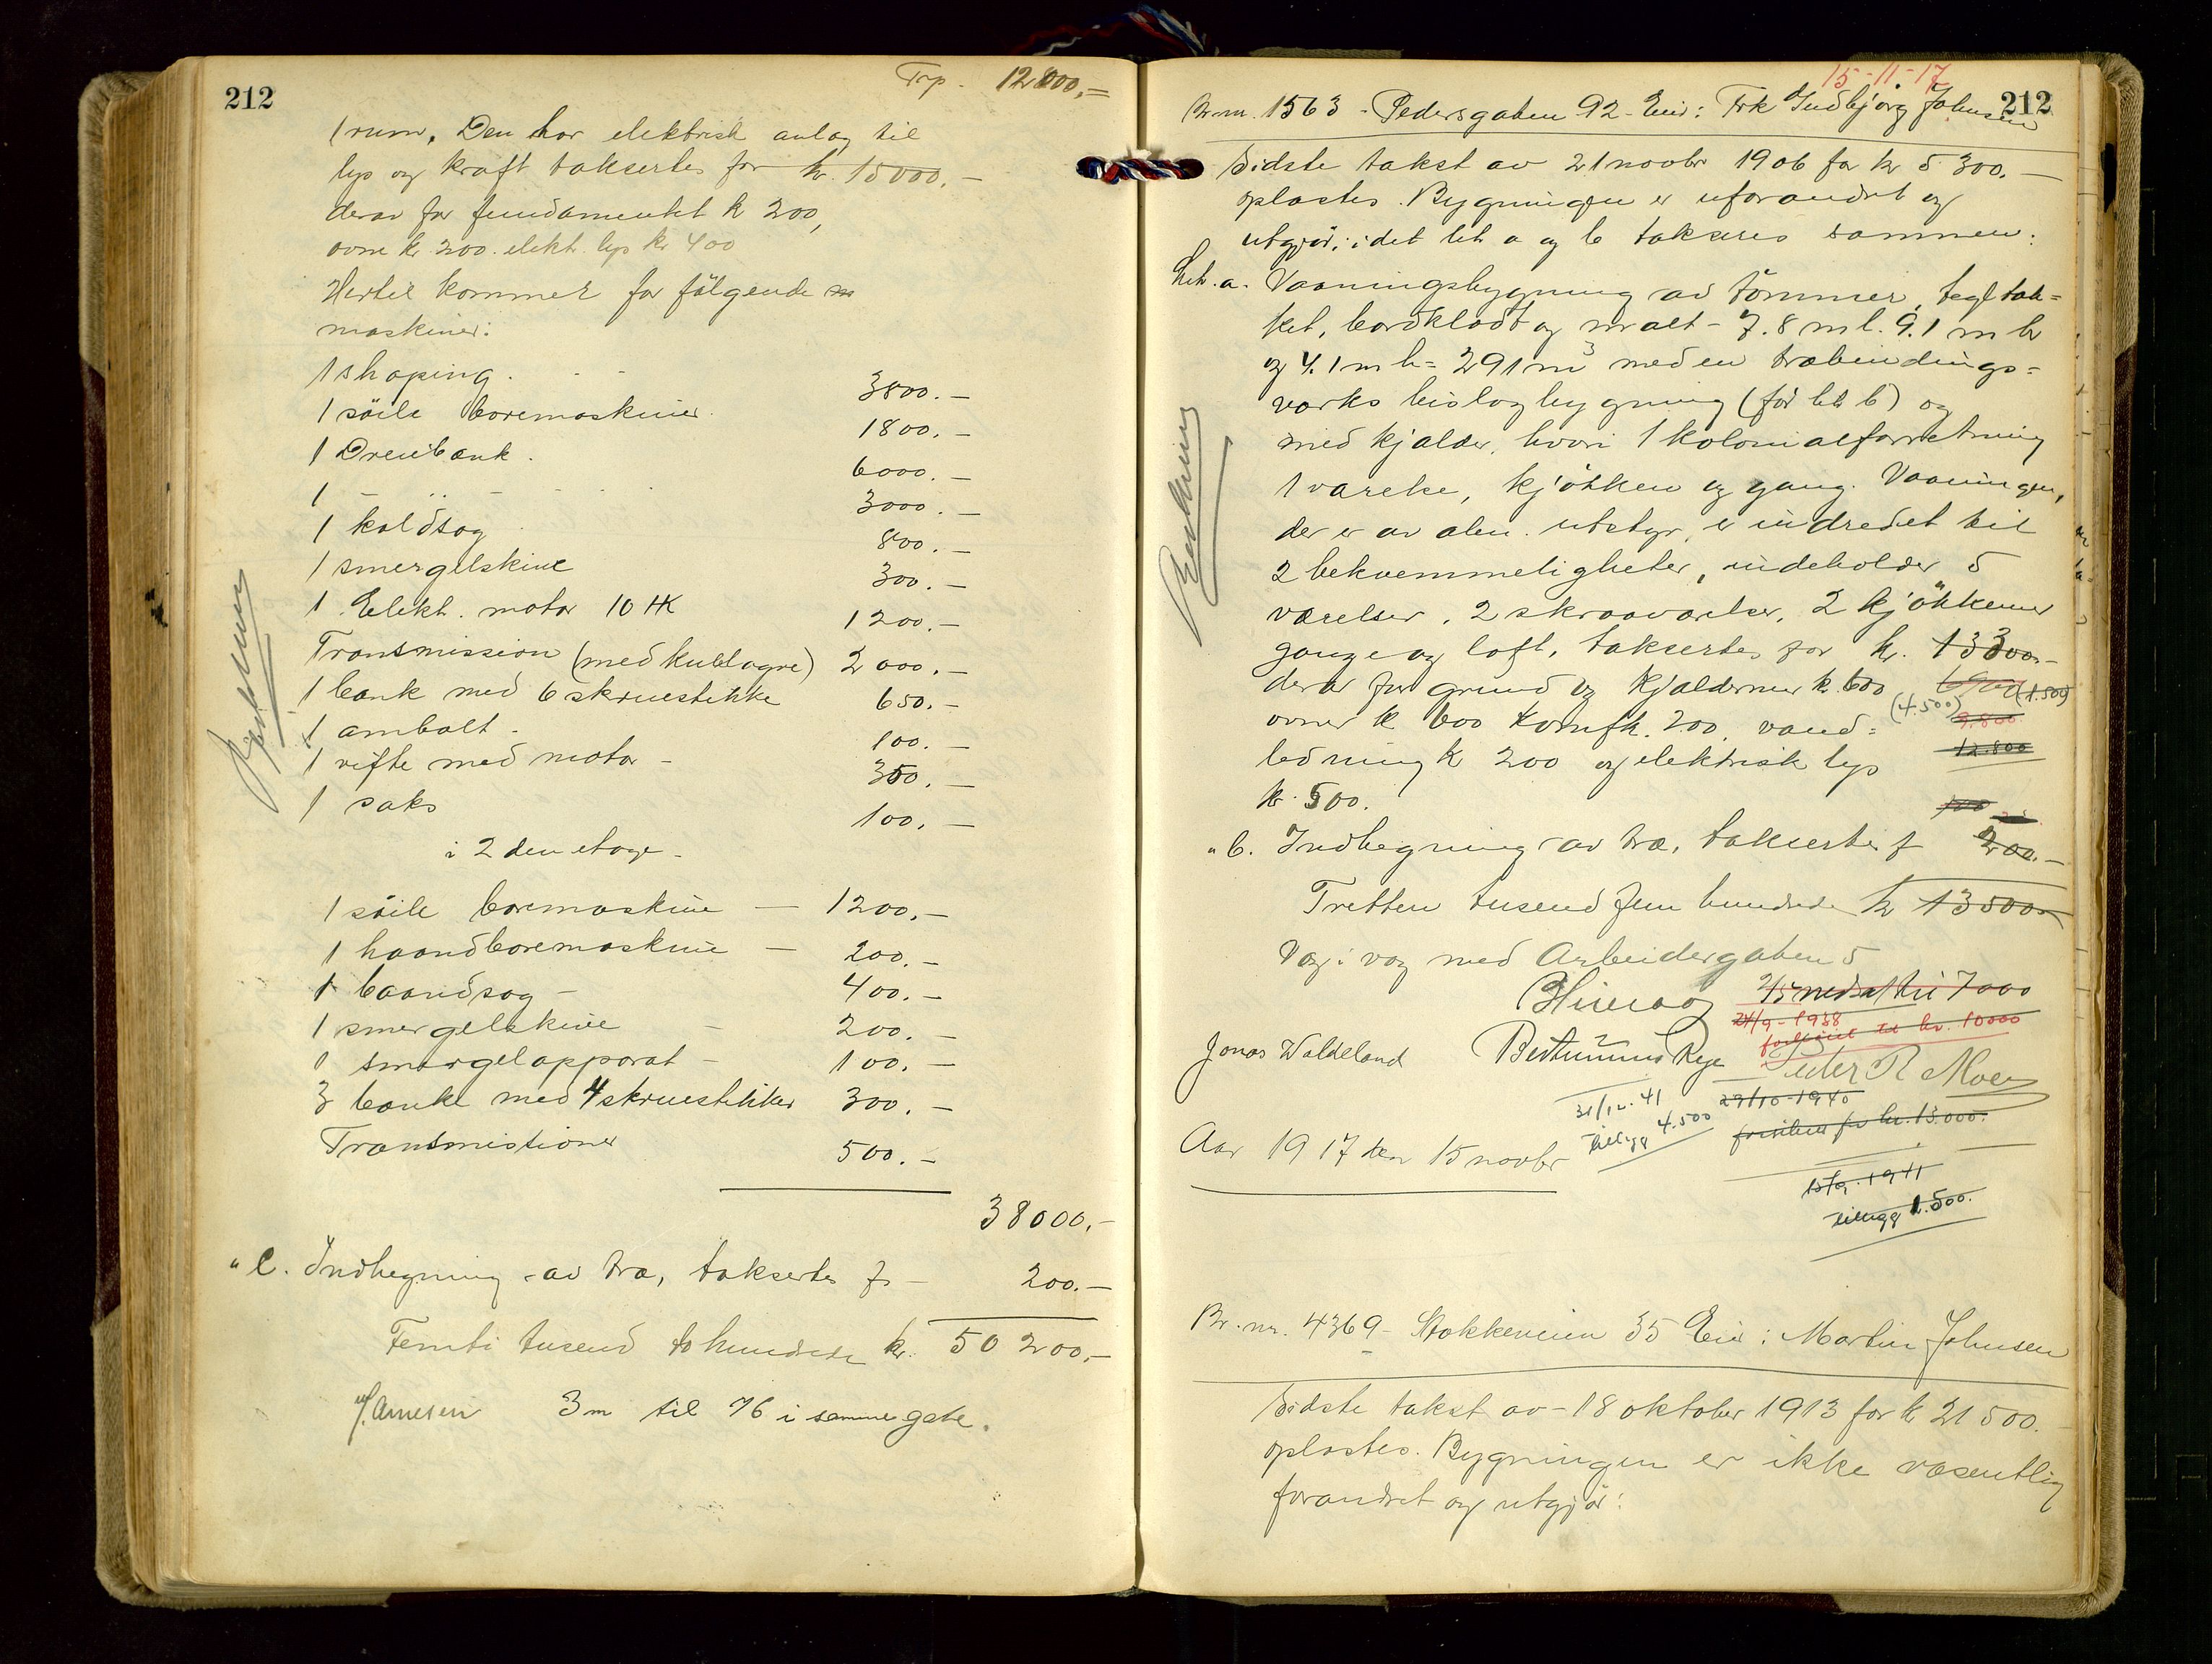 212
Trp. 12800,=
1 rum. Den har elektrisk anlæg til
lys og kraft taksertes for kr. 15000,-
derav for fundamentet k 200,
ovne kr 200. elekt. lys kr 400
Hertil kommer for følgende
maskiner:
1 shaping. 3800.-
1 söile boremaskiner. 1800.-
1 Dreiebænk. 6000.-
1 - " - 3000.-
1 koldsag 800.-
1 smergelskive 300.-
1 Elekt. motor 10 HK 1200.-
Transmission (med kullagre) 2000.-
1 bænk med 6 skruestikke 650.-
1 ambolt. 100.-
1 vifte med motor - 350.-
1 saks 100.-
i 2den etage.
1 söile boremaskine - 1200.-
1 haandboremaskine - 200.-
1 baandsag - 400.-
1 smergelskive - 200.-
1 smergelapparat - 100.-
3 bænke med 4 skruestikker 300.-
Transmistioner 500.-
38000.-
" c. Indhegning av træ, taksertes fr - 200.-
Femti tusend to hundrede kr. 50 200,-
J. Arnesen 3m til 76 i samme gate.
15-11-17
212
Br.nr. 1563 - Pedersgaten 92 - Eier: Frk Indbjørg Johnsen
Sidste takst av 21 novbr 1906 for kr 5 300.-
oplastes. Bygningen er uforandret og
utgjør, idet lit a og b takseres sammen:
Lit. a. Vaaningsbygning av tömmer, tegltæk=
ket, bordklædt og malt - 7.8 m l. 9.1 m b
og 4.1 m h = 291 m³ med en træbindings=
værks bislagbygning (før lit b) og
med kjælder, hvori 1 kolonialforretning
1 værelse, kjökken og gang. Vaaningen,
der er av alm. utstyr, er indredet til
2 bekvemmeligheter, indeholder 5
værelser, 2 skraaværelser, 2 kjökkener
gange og loft, taksertes for kr. 13300.-
derav for grund og kjældermur k. 600 (1.500)
ovner k 600 komf k. 200, vand= (4.500) 9.800
ledning k 200 og elektrisk lys 12.800
kr. 500.
" b. Indhegning av træ, taksertes f 200.-
Tretten tusend fem hundrede kr 13500.-
Væg i væg med Arbeidergaten 5
2/5 nedsat til 7000
24/9-1938
forhøiet til kr. 10000
Jonas Waldeland
Peder R Moen
31/12.41
tillegg 4.500
29/10-1940
kr. 13.000.
Aar 1917 den 15 novbr
15/9.1941
tillegg 1.500.
Br. nr. 4369 - Stokkeveien 35 Eier: Martin Johnsen
Sidste takst av - 18 oktober 1913 for k 21 500.-
oplastes. Bygningen er ikke væsentlig
forandret og utgjør: